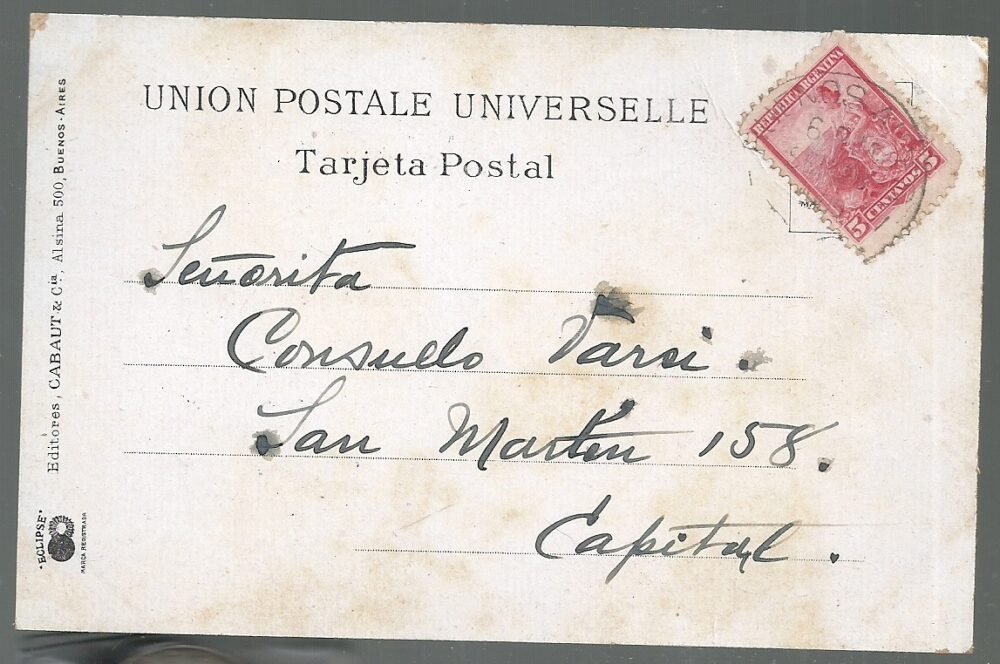 UNION POSTALE UNIVERSELLE
Tarjeta Postal
REPUBLICA ARGENTINA
5 CENTAVOS 5
Señorita
Consuelo Varsi.
San Martín 158.
Capital.
Editores, CABAUT & Cía, Alsina 500, BUENOS-AIRES
"ECLIPSE"
MARCA REGISTRADA